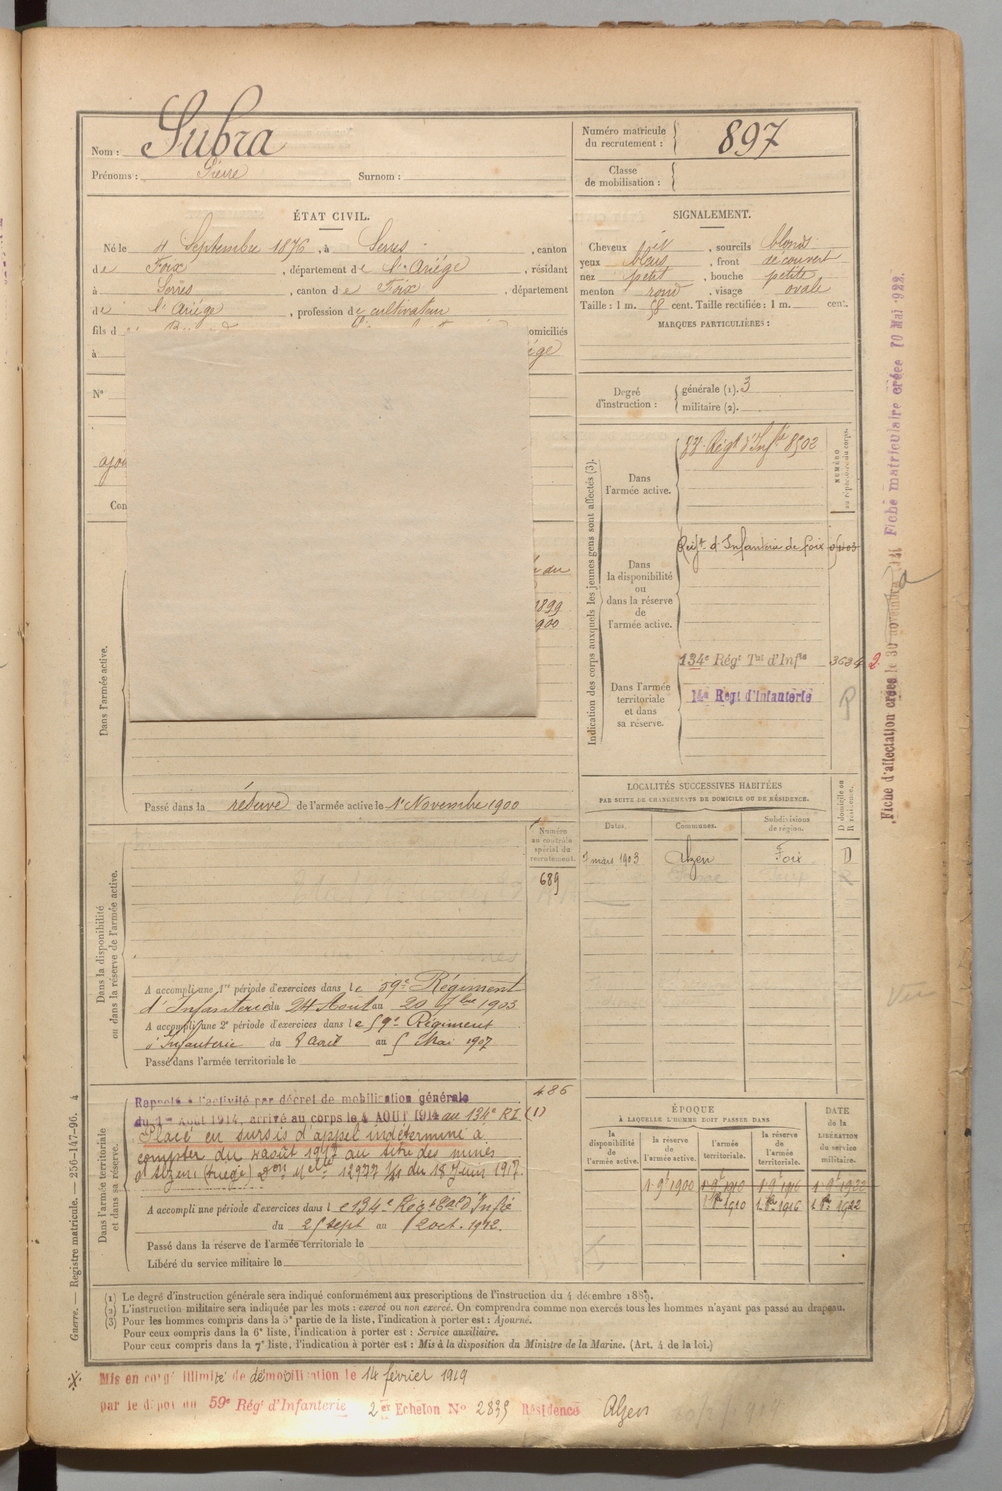 Nom : Subra
Prénoms : Pierre Surnom :
Numéro matricule
du recrutement : 897
Classe
de mobilisation :
ÉTAT CIVIL.
Né le 4 Septembre 1876, à Serres, canton
de Foix, département de l'Ariège, résidant
à Serres, canton de Foix, département
de l'Ariège, profession de cultivateur
fils d
domiciliés
à
N°
ajou
Con
SIGNALEMENT.
Cheveux id, sourcils blonds
yeux bleus, front découvert
nez petit, bouche petite
menton rond, visage ovale
Taille : 1 m. 58 cent. Taille rectifiée : 1 m. cent.
MARQUES PARTICULIÈRES :
Degré
d'instruction :
générale (1). 3
militaire (2).
Indication des corps auxquels les jeunes gens sont affectés (3).
NUMÉRO
Dans
l'armée active.
Régt d'Infie 8502
Dans
la disponibilité
ou
dans la réserve
de
l'armée active.
Régt d'Infanterie de Foix
Dans l'armée
territoriale
et dans
sa réserve.
134e Régt Tal d'Infie
14e Régt d'Infanterie
R
Dans l'armée active.
du
1899
1900
Passé dans la réserve de l'armée active le 1er Novembre 1900
LOCALITÉS SUCCESSIVES HABITÉES
PAR SUITE DE CHANGEMENTS DE DOMICILE OU DE RÉSIDENCE.
Dates. Communes. Subdivisions
de région. D domicile ou
R résidence.
mars 1903 Alzen Foix D
Numéro
au contrôle
spécial du
recrutement.
689
Dans la disponibilité
ou dans la réserve de l'armée active.
A accompli une 1re période d'exercices dans le 59e Régiment
d'Infanterie du 24 Aout au 20 7bre 1903
A accompli une 2e période d'exercices dans le 59e Régiment
d'Infanterie du 8 avril au 5 Mai 1907
Passé dans l'armée territoriale le
Dans l'armée territoriale
et dans sa réserve.
486
Rappelé à l'activité par décret de mobilisation générale
du 1er Août 1914, arrivé au corps le 4 AOUT 1914 au 134e RI (1)
Placé en sursis d'appel indéterminé à
compter du août 1917 au titre des mines
d'Alzen (Ariège) Don Mlle 15977 du 18 Juin 1917.
A accompli une période d'exercices dans le 134e Régt Tal d'Infie
du 25 sept au 2 oct. 1912.
Passé dans la réserve de l'armée territoriale le
Libéré du service militaire le
ÉPOQUE
À LAQUELLE L'HOMME DOIT PASSER DANS
DATE
de la
LIBÉRATION
du service
militaire.
la
disponibilité
de l'armée active.
la réserve
de
l'armée active.
l'armée
territoriale.
la réserve
de l'armée
territoriale.
1 9e 1900 1 9e 1910 1 9e 1916 1 9e 1922
1 8e 1910 1 8e 1916 1 8e 1922
(1) Le degré d'instruction générale sera indiqué conformément aux prescriptions de l'instruction du 4 décembre 1889.
(2) L'instruction militaire sera indiquée par les mots : exercé ou non exercé. On comprendra comme non exercés tous les hommes n'ayant pas passé au drapeau.
(3) Pour les hommes compris dans la 5e partie de la liste, l'indication à porter est : Ajourné.
Pour ceux compris dans la 6e liste, l'indication à porter est : Service auxiliaire.
Pour ceux compris dans la 7e liste, l'indication à porter est : Mis à la disposition du Ministre de la Marine. (Art. 4 de la loi.)
Mis en congé illimité de démobilisation le 14 février 1919
par le dépôt du 59e Régt d'Infanterie 2e Echelon No 2839 Résidence Alzen
Guerre. — Registre matricule. — 256-147-96. 4
Fiche d'affectation créée le 30 novembre
Fiche matriculaire créée 10 Mai 1922.